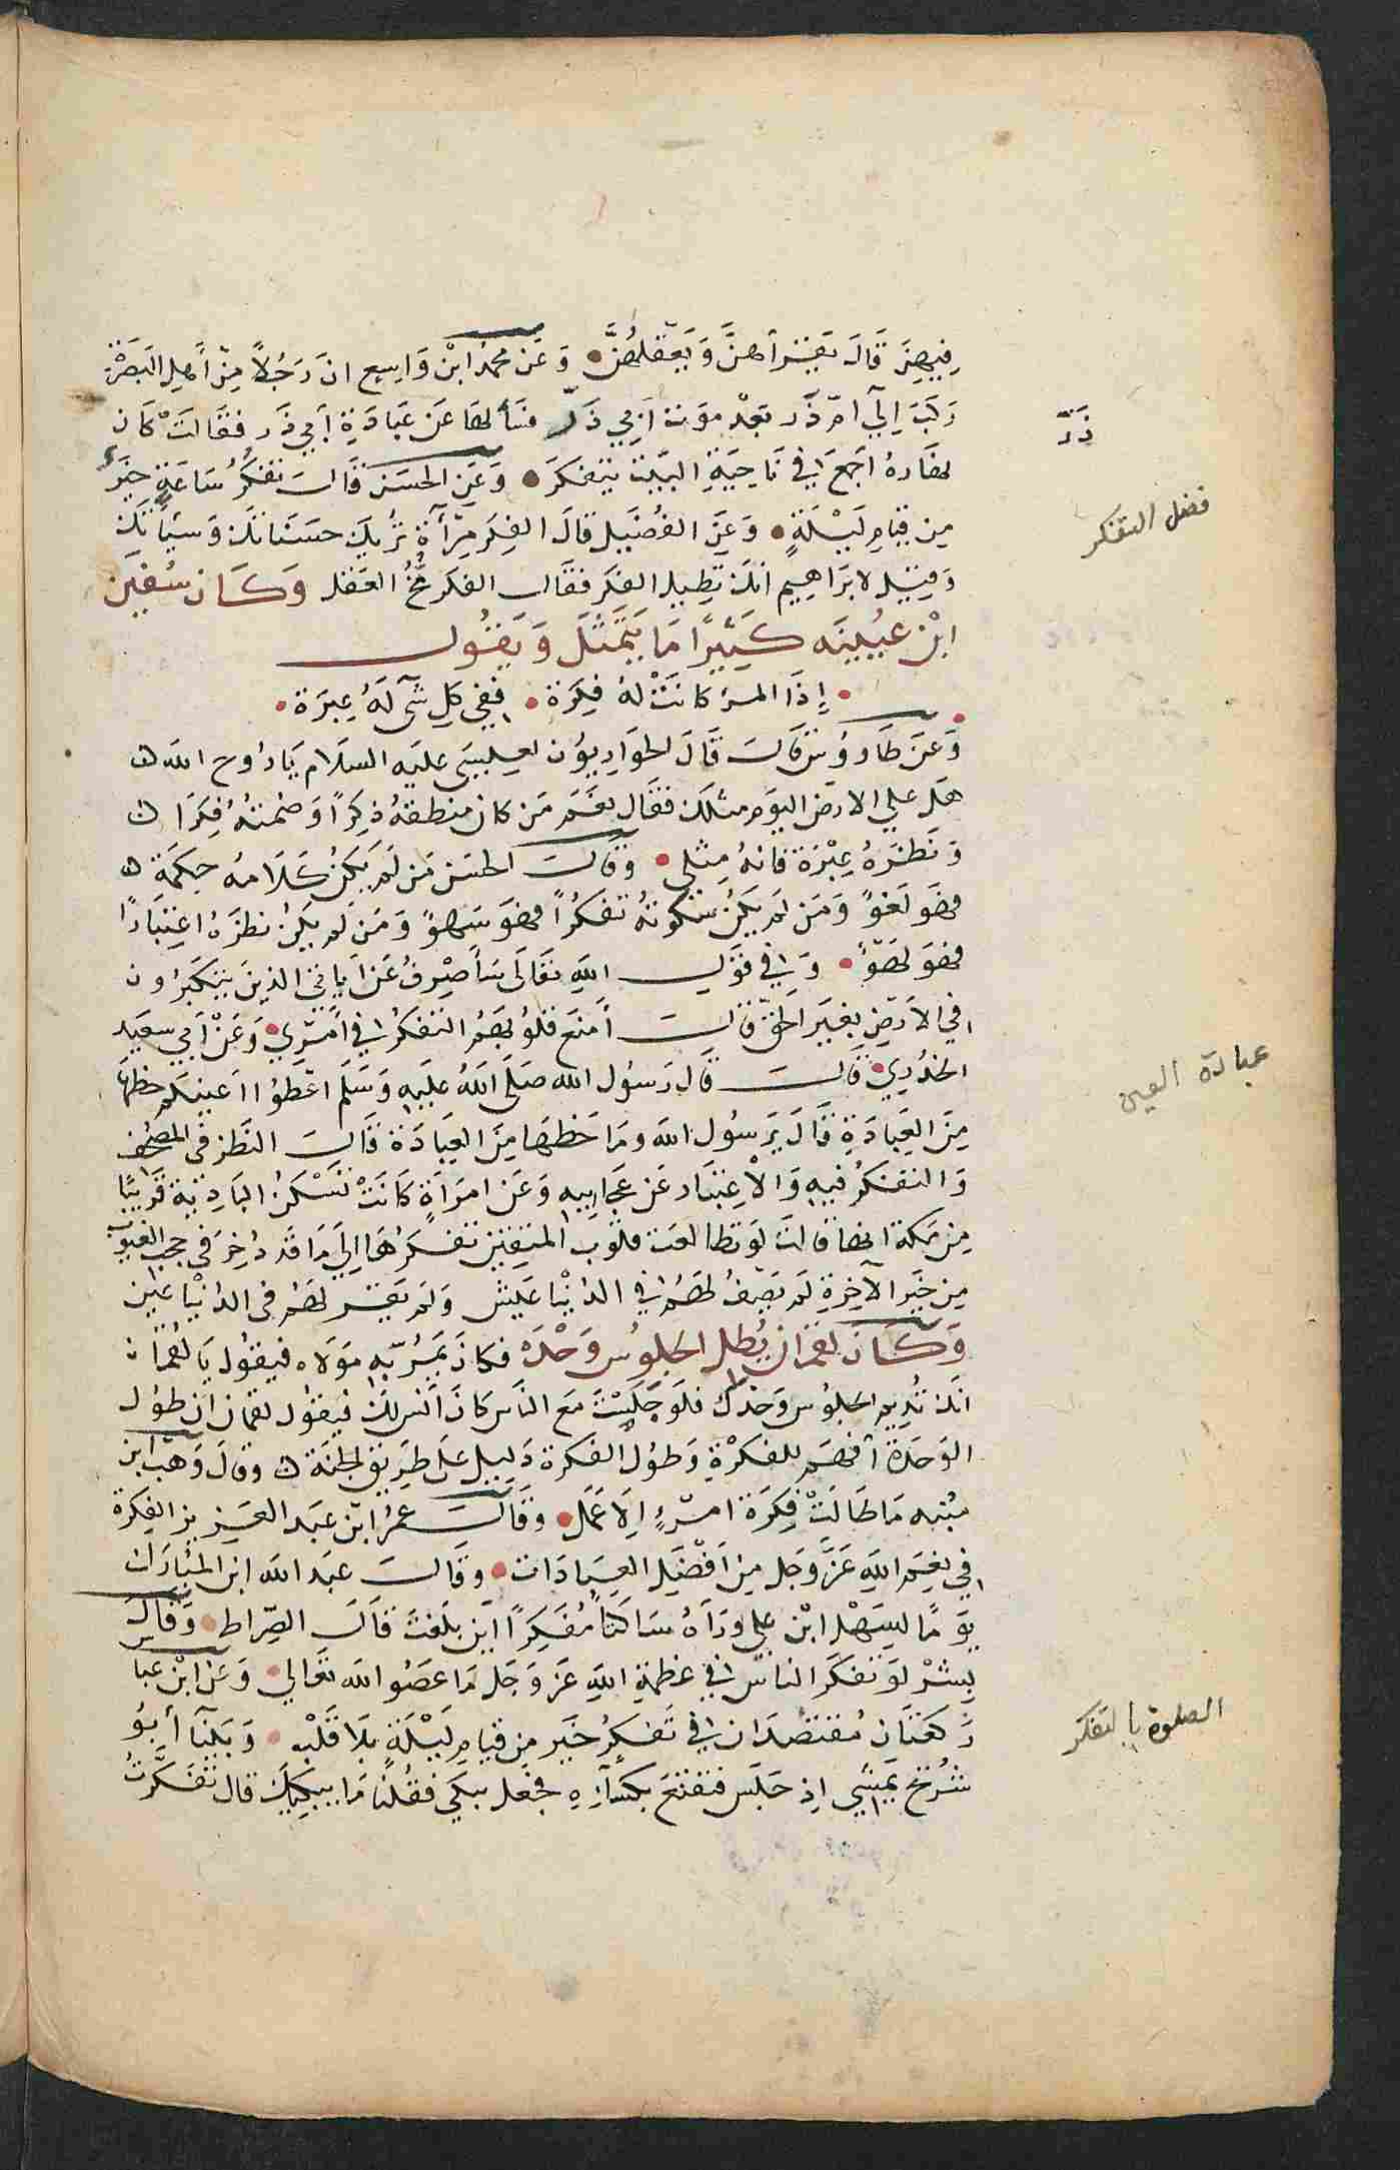 فيهن قَالَ يَقرأهنَّ وَيَعْقلهُنَّ • وَعَن محمد ابْن وَاسِع ان رَجُلاً مِنْ أهل البَصْرَة
رَكبَ اِلَى امّ ذَر بَعْد مَوت اَبي ذَرّ فسَألها عَن عبَادَةِ أبي ذَر فقَالَتْ كَان
نهَارهُ اجمعَ في نَاحِيَةِ البَيْت يتفكرَ • وَعَن الحسَن قَالَ تفكرُ سَاعَةٍ خيْرٌ
مِن قيَامِ لَيْلَةٍ • وَعَن الفُضَيل قالَ الفِكر مِرْآةٌ تُريكَ حسَنَاتك وَسَيّآتكَ
وَقيل لابرَاهيم انكَ تطِيل الفكر فقَال الفكر مُخُّ العَقل وَكَان سُفيَن
ابْن عيُيينَه كَثِيرًا مَا يَتمَثّلَ وَيَقُول
• إِذَا المرؤ كانَتْ لهُ فِكرَة • ففِي كلِ شَى لَهُ عِبرَة •
وَعَن طَاووُسٍ قَالَ قَالَ الحوَاريوُن لعيسَى عليَه السلَام يَا رُوح الله
هَل علي الارض اليوَم مثلكَ فقَال نعَمَ مَن كان منطقهُ ذِكرًا وَصْمتهُ فِكرًا
وَنَظَرَهُ عِبْرَة فَانهُ مِثلى • وقَالَ الحسَن مَن لَمْ يَكنْ كَلَامهُ حِكمَة
فهُوَ لَغوٌ وَمَن لم يكن سُكوتهُ تفكرُاً فهوَ سَهوٌ وَمَن لم يكن نظَرهُ اعتبَارًا
فهوَ لهَوٌ • وَفي قوَل اللهِ تعَالَى سَأصْرِفُ عَن آيَاتي الذينَ يتكبرُون
في الارَضِ بغيَر الحَقّ قالَ أمنَع قلوُبهَمُ التفكرُ في أمْري • وَعَن أبي سعَيد
الخدُري • قَالَ قَال رَسوُل الله صَلَى اللهُ عَليَهِ وَسَلّم اعْطوُا اَعينكم حظهَا
مِنَ العِبَادَةِ قَالَ يَرسوُل الله ومَا حَظهَا مِنَ العِبَادَة قَالَ النظر في المصْحف
وَالتفَكرُ فيهِ وَالْاعِتبَار عَن عَجَايبِهِ وَعَن امرَاةٍ كانَتْ تسْكنُ البَادِيَة قريبًا
مِن مَكة انهَا قالَت لَو تطالعَت قلوُب المتقين تفكرُهَا الى مَا قَد دُخِرَ في حجب الغيوب
مِن خَير الآخِرةِ لَم يصِفُ لهَمُ في الدُنيْا عَيش وَلم تقَر لهَم في الدُنيْا عَين
وَكَان لقمَان يُطل الجلوُس وَحْدَهُ فكان يمُر بّهِ مَولَاه فيقُول يَا لقُمَان
انكَ تُديم الجلوُس وَحدك فلَو جَلسْتَ مَع النَاس كانَ آنسَ لكَ فيَقوُل لقمان ان طوُل
الوَحدَة أفهَم للفكرْةِ وَطوُل الفكرة دَليل عَلى طَريق الجنّة وقالَ وَهْب ابن
مُنبه مَا طَالَتْ فِكرَة امْرءٍ اِلَا عَمل • وقَالَ عمرُ ابْن عَبد العَزيز الفِكرة
في نعِم اللهِ عَزّ وَجَل مِن اَفْضَل العِبَادَات • وقَالَ عبَد الله ابن المُبارَك
يوَمًا لسَهْل ابْن علي ورَآهُ سَاكتًا مُفَكِرًا اَين بَلغتَ قَالَ الصّراط • وَقَالَ
بِشرْ لوَ تفكَر الناسُ في عظمَةِ اللهِ عَز وَجَل مَا عصَوُا الله تعَالي • وَعَن ابْن عبَا
رَكعَتَان مُقتصَدَان في تَفكِرُ خَير مِن قيَام لَيْلَةٍ بَلَا قَلْب • وَبَيْنَا أبوُ
شُرَيح يمشي اِذ جَلس فتقنعَ بكسَآئِهِ فجعَل يبكي فقُلنَا مَا يبكيكَ قال تفكَرَتُ
ذَرّ
فضل التفكر
عبادة العين
الصلوة بالتفكر